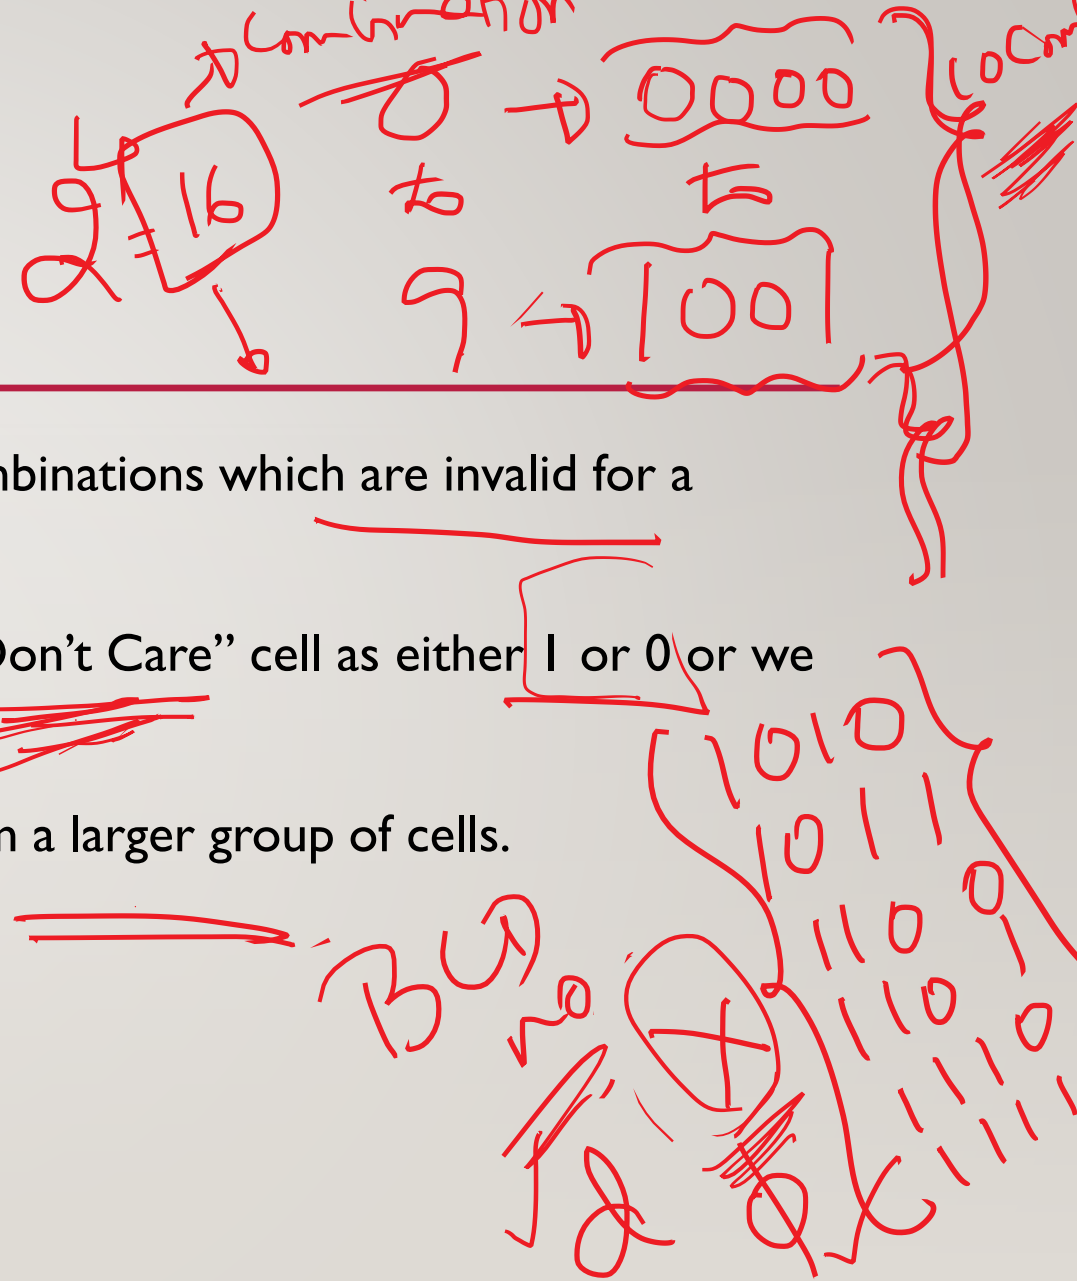 Combination
2⁴ = 16
0 → 0000
10 Com
to to
9 → 1001
mbinations which are invalid for a
Don't Care” cell as either 1 or 0 or we
n a larger group of cells.
1010
1011
1100
1101
1110
1111
BCD
no
X